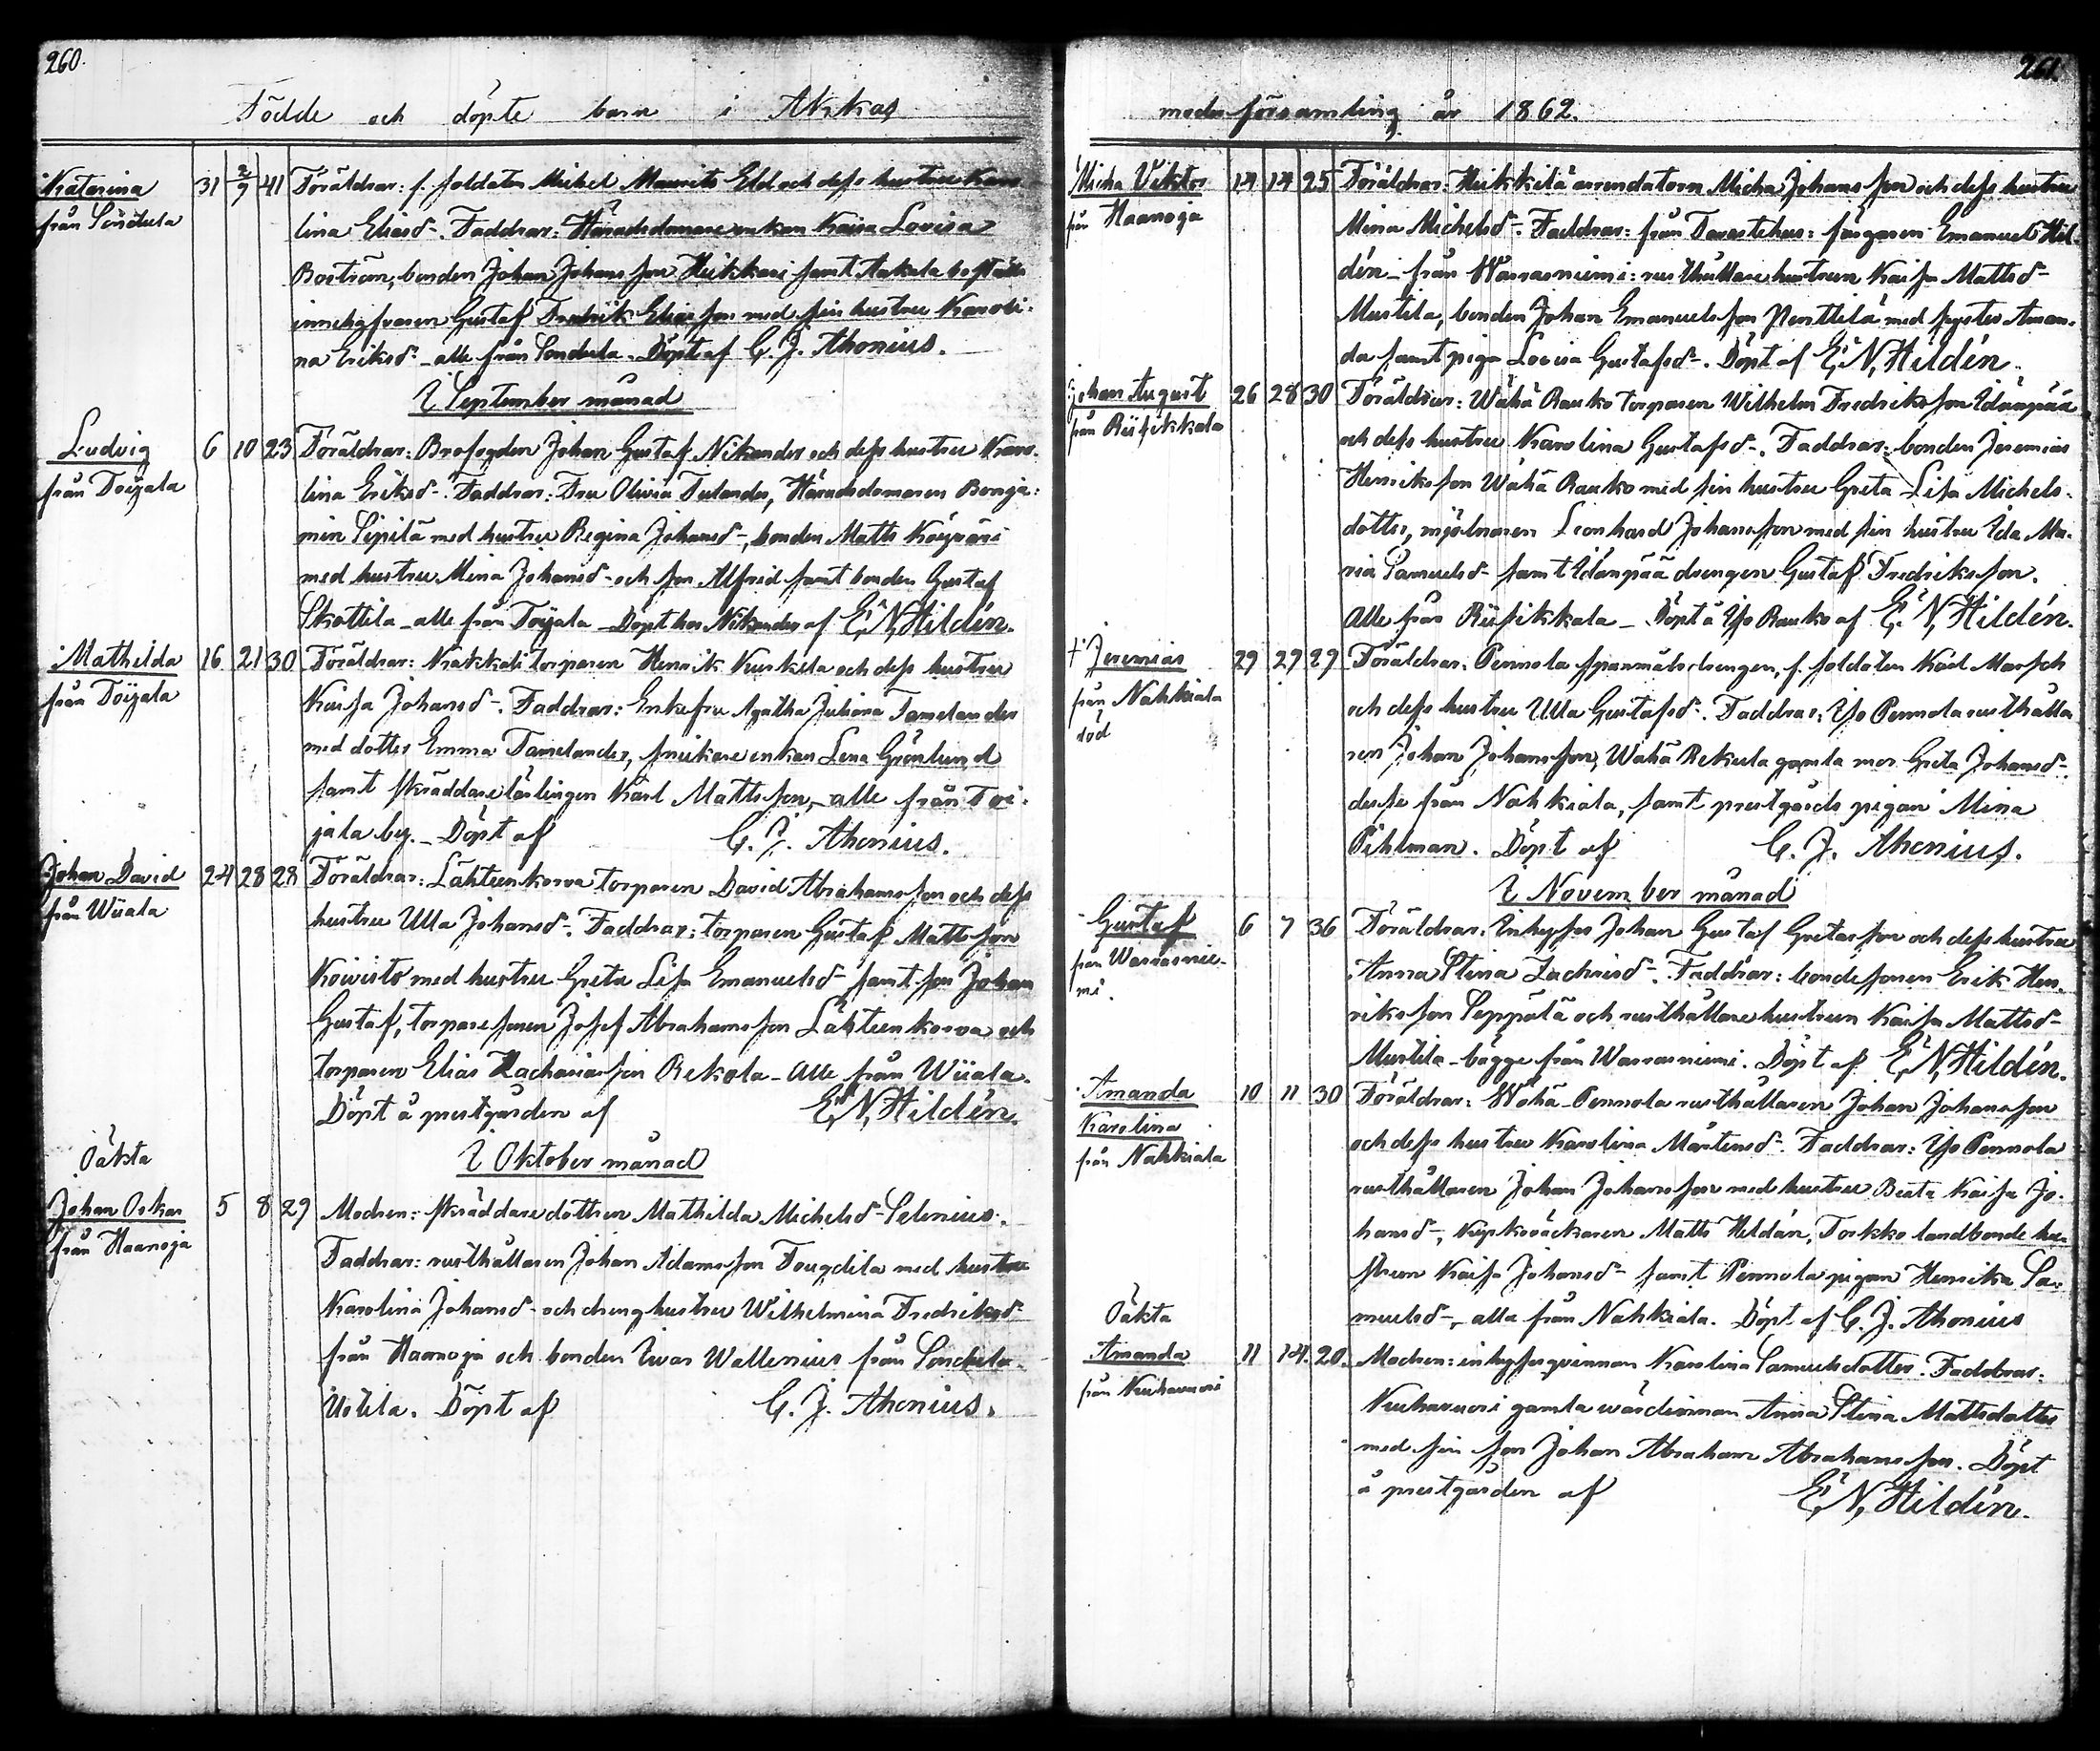 260.
Födde och döpte barn i Akkas
Katarina
från Sondula
31 2/9 41 Föräldrar: f. soldaten Mickel Maurits Eld och dess hustru Karo
lina Eliasd-. Faddrar: Häradsdomare enkan Kaisa Lovisa
Boström, bonden Johan Johansson Heikkari samt
Gustaf Fredrik Eliasson med sin hustru Karoli-
na Eriksd- alle från Sondula. Döpt af C. J. Ahonius.
I September månad
Ludvig
från Toijala
6 10 23 Föräldrar: Brofogden Johan Gustaf Nikander och dess hustru Karo-
lina Eriksd-. Faddrar: Fru Olivia Tulander, Häradsdomaren Benja-
min Sipilä med hustru Regina Johansd-, bonden Matts
med hustru Mina Johansd- och son Alfred samt bonden Gustaf
Skottila - alle från Toijala - Döpt hos Nikander af E. N. Hildén.
Mathilda
från Toijala
16 21 30 Föräldrar: torparen Henrik Kurkela och dess hustru
Kaisa Johansd-. Faddrar: Enkefru Agatha Juliana Tamelander
med dotter Emma Tamelander, snickare enkan Lena Grönlund
samt skräddarelärlingen Karl Mattsson, - alle från Toi-
jala by. - Döpt af C. J. Ahonius.
Johan David
från Wiiala
24 28 28 Föräldrar: Lähteenkorva torparen David Abrahamsson och dess
hustru Ulla Johansd-. Faddrar: torparen Gustaf Mattsson
Koivisto med hustru Greta Lisa Emanuelsd- samt son Johan
Gustaf, torparesonen Josef Abrahamsson Lähteenkorva och
torparen Elias Zachariasson Rekola - Alle från Wiiala.
Döpt å prestgården af E. N. Hildén.
I Oktober månad
Oäkta
Johan Oskar
från Haanoja
5 8 29 Modren: skräddaredottren Mathilda Michelsd- Selenius.
Faddrar: rusthållaren Johan Adamsson Tougdila med hustru
Karolina Johansd- och drenghustru Wilhelmina Fredriksd-
från Haanoja och bonden Ivar Wallenius från Sondula
Uotila. Döpt af C. J. Ahonius.
261.
moderförsamling år 1862.
Micha Viktor
från Haanoja
14 14 25 Föräldrar: Heikkilä arrendatorn Micha Johansson och dess hustru
Mina Michelsd-. Faddrar: från Tavastehus: färgaren Emanuel Hil-
dén - från Warrasniemi: rusthållarehustrun Kaisa Mattsd-
Mustila, bonden Johan Emanuelsson Penttilä med syster Aman-
da samt piga Lovisa Gustafsd-. Döpt af E. N. Hildén.
Johan August
från Riisikkala
26 28 30 Föräldrar: Wähä Rauko torparen Wilhelm Fredriksson Idänpää
och dess hustru Karolina Gustafsd-. Faddrar: bonden Jeremias
Henriksson Wähä Rauko med sin hustru Greta Lisa Michels-
dotter, mjölnaren Leonhard Johansson med sin hustru Ida Ma-
ria Samuelsd- samt Idänpää drengen Gustaf Fredriksson.
Alle från Riisikkala - Döpt å Iso Rauko af E. N. Hildén.
† Jeremias
från Nahkiala
död
29 29 29 Föräldrar: Pennola spanmålsdrengen, f. soldaten Karl Marsch
och dess hustru Ulla Gustafsd-. Faddrar: Iso Pennola rusthålla-
ren Johan Johansson, Wähä Rekula gamla mor Greta Johansd-,
desse från Nahkiala, samt prestgårds pigan Mina
Pihlman. Döpt af C. J. Ahonius.
I November månad
Gustaf
från Warrasnie-
mi.
6 7 36 Föräldrar: Inhyses Johan Gustaf Gretasson och dess hustru
Anna Stina Zachrisd-. Faddrar: bondesonen Erik Hen-
riksson Seppälä och rusthållarehustrun Kaisa Mattsd-
Mustila - bägge från Warrasniemi. Döpt af E. N. Hildén.
Amanda
Karolina
från Nahkiala
10 11 30 Föräldrar: Wähä-Pennola rusthållaren Johan Johansson
och dess hustru Karolina Mårtensd-. Faddrar: Iso Pennola
rusthållaren Johan Johansson med hustru Beata Kaisa Jo-
hansd-, kyrkoväktaren Matts Heldán, Torkko landbonde hu-
strun Kaisa Johansd- samt Pennola pigan Henrika Sa-
muelsd-, alla från Nahkiala. Döpt af C. J. Ahonius
Oäkta
Amanda
från Kurhavuori
11 14. 20. Modren: inhysesqvinnan Karolina Samuelsdotter. Faddrar:
Kurhavuori gamla wärdinnan Anna Stina Mattsdotter
med sin son Johan Abraham Abrahamsson. Döpt
å prestgården af E. N. Hildén.